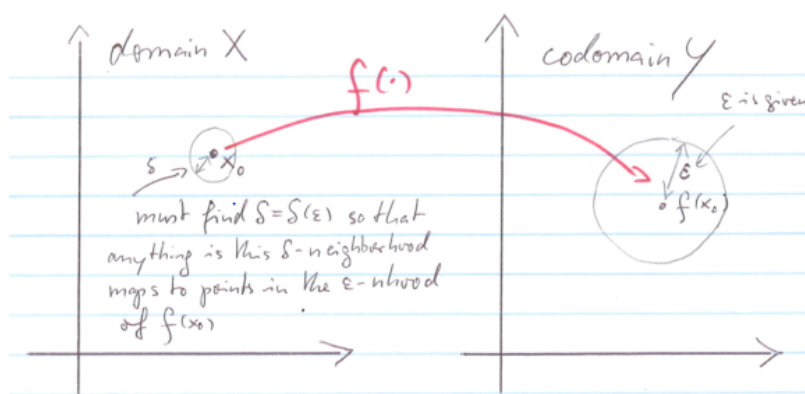 domain X
codomain Y
f(·)
ε is given
δ
x₀
ε
f(x₀)
must find δ = δ(ε) so that
anything is this δ-neighborhood
maps to points in the ε-nhood
of f(x₀)